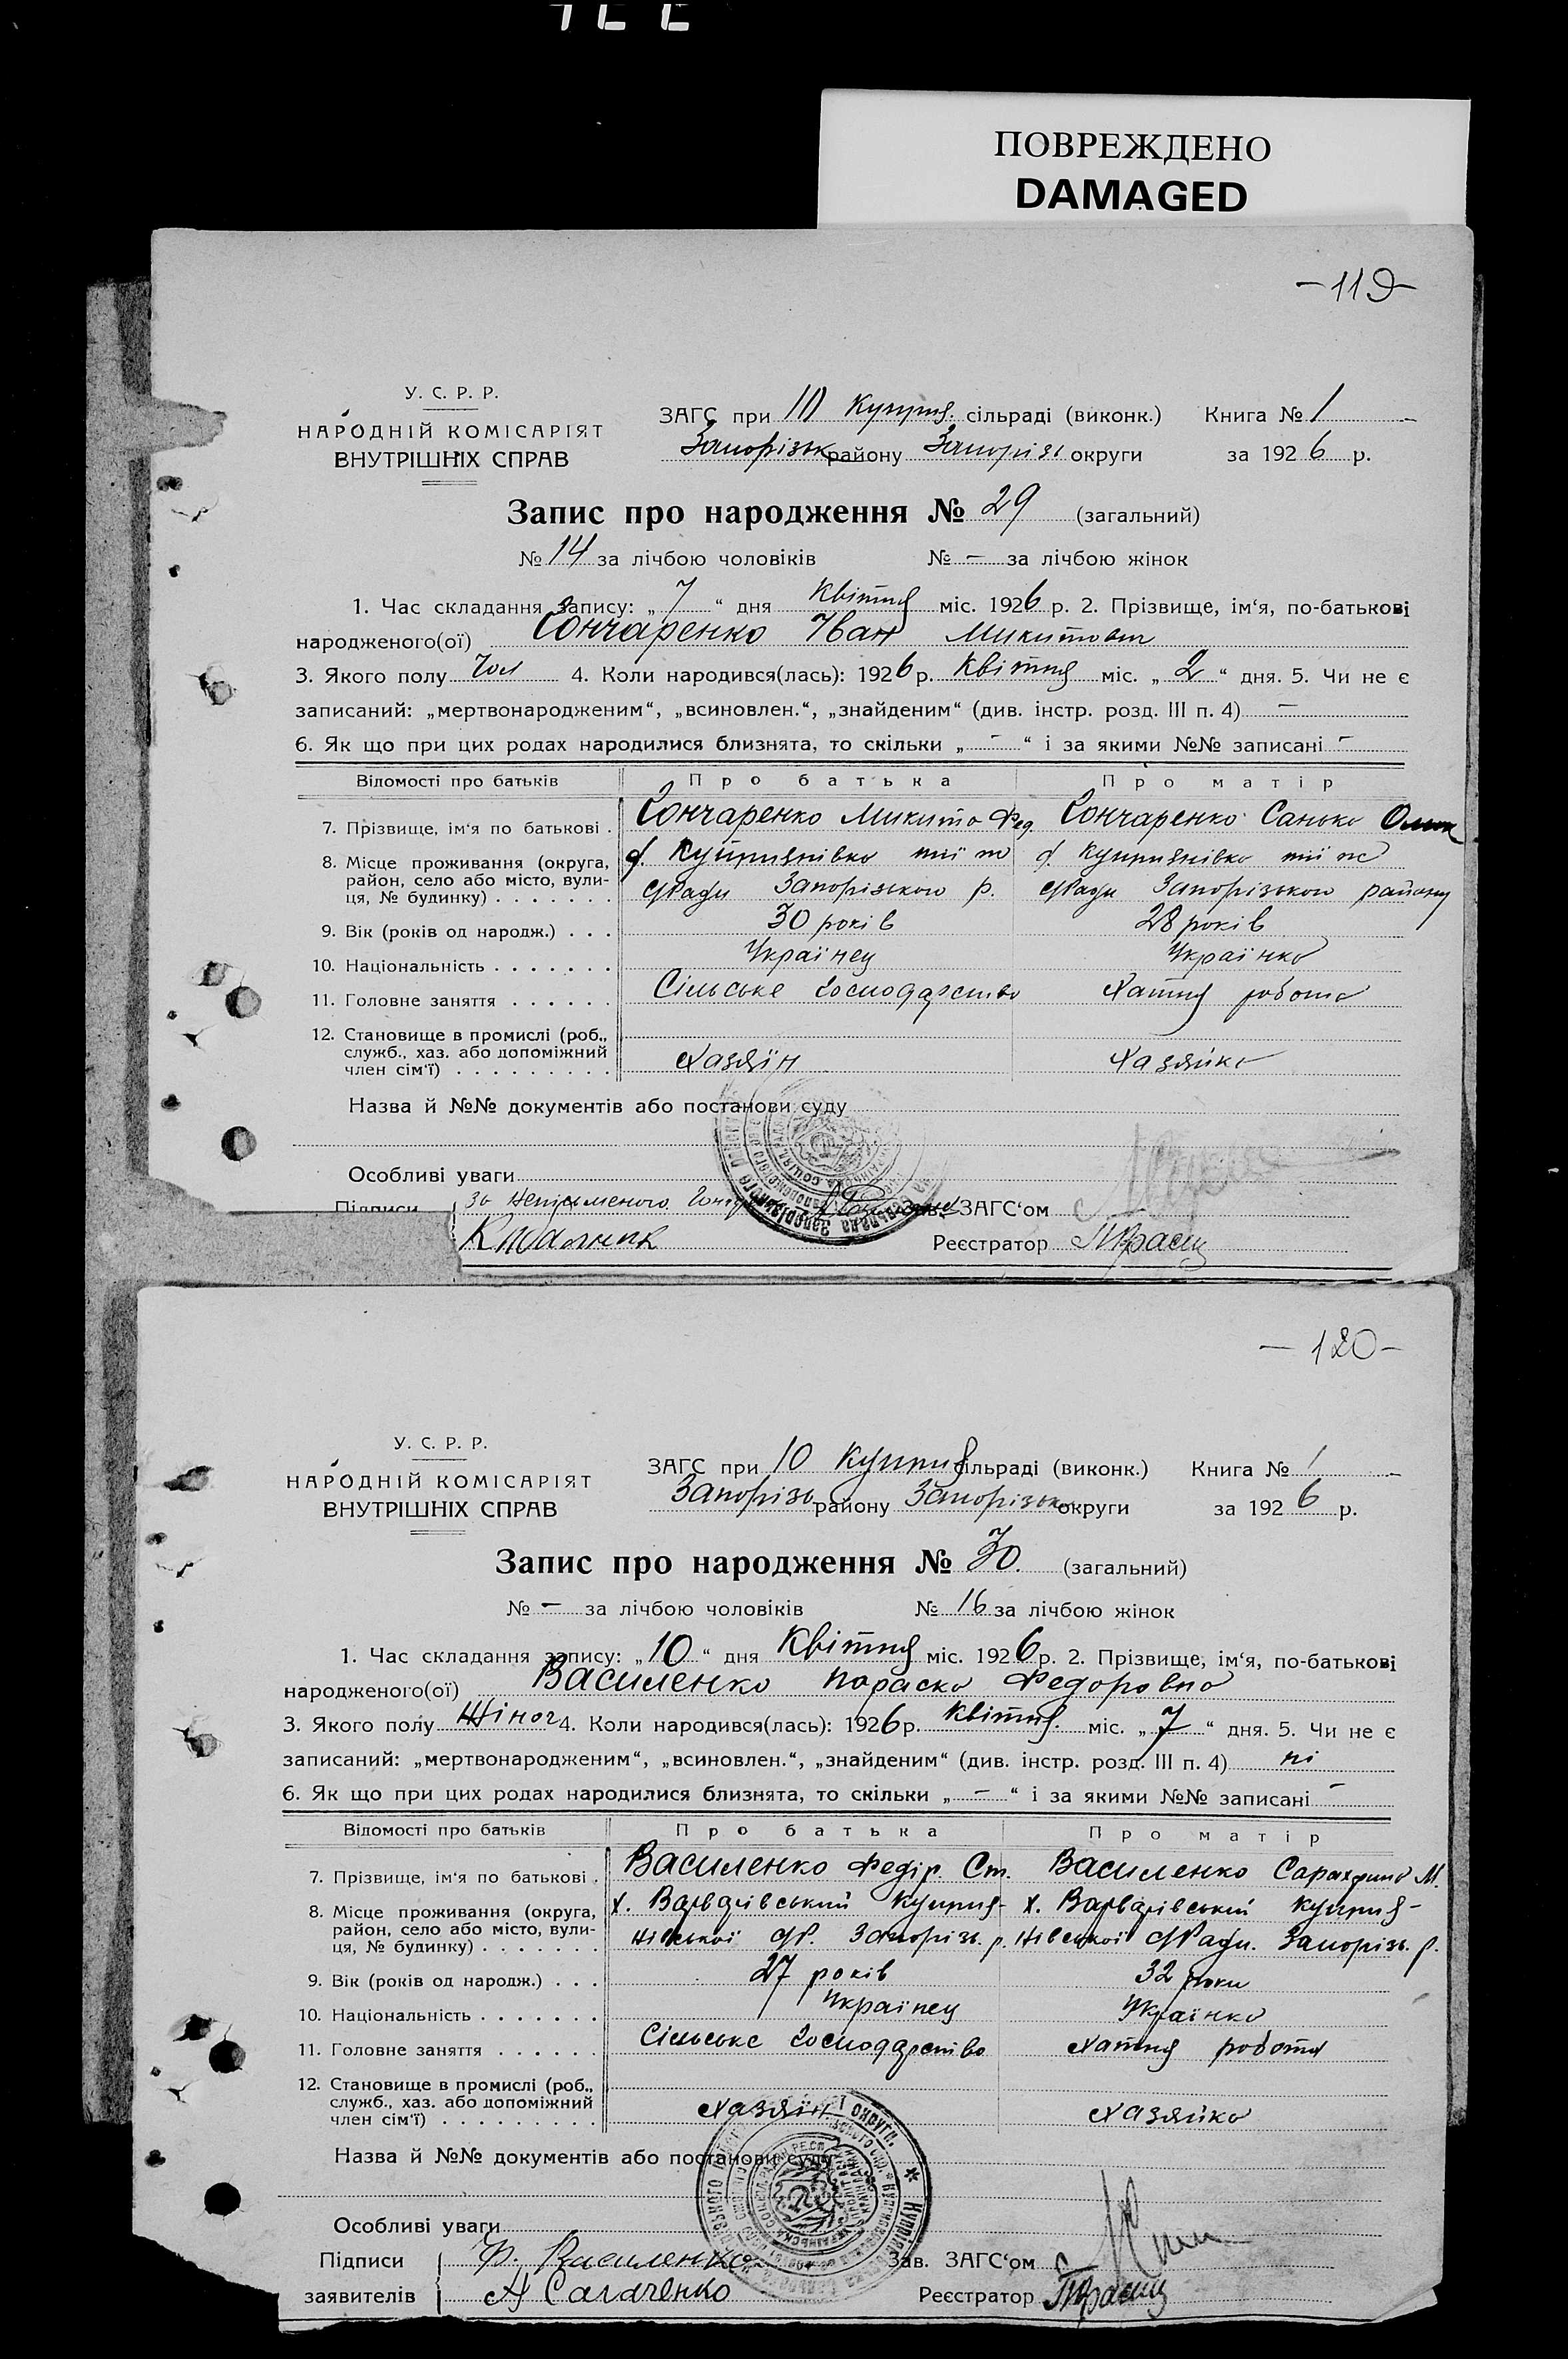 ПОВРЕЖДЕНО
DAMAGED
-119-
У. С. Р. Р.
НАРОДНІЙ КОМІСАРІЯТ
ВНУТРІШНІХ СПРАВ
ЗАГС при 10 Куприя. сільраді (виконк.) Книга № 1
Запорізьк району Запорізь округи за 1926 р.
Запис про народження № 29 (загальний)
№ 14 за лічбою чоловіків № - за лічбою жінок
1. Час складання запису: „ 7 “ дня Квітня міс. 1926 р. 2. Прізвище, ім‘я, по-батькові
народженого(ої) Гончаренко Іван Микитович
3. Якого полу Чол 4. Коли народився(лась): 1926 р. Квітня міс. „ 2 “ дня. 5. Чи не є
записаний: „мертвонародженим“, „всиновлен.“, „знайденим“ (див. інстр. розд. III п. 4) -
6. Як що при цих родах народилися близнята, то скільки „ - “ і за якими №№ записані -
Відомості про батьків Про батька Про матір
7. Прізвище, ім‘я по батькові . Гончаренко Микита Фед. Гончаренко Санька
8. Місце проживання (округа, район, село або місто, вулиця, № будинку) . . . . . . . с. Куприянівка тії ж с. Куприянівка тії ж
с/Ради Запорізького р. с/Ради Запорізького району
9. Вік (років од народж.) . . . 30 років 28 років
10. Національність . . . . . . . Українец Українка
11. Головне заняття . . . . . . Сільське господарство Хатня робота
12. Становище в промислі (роб., служб., хаз. або допоміжний член сім‘ї) . . . . . . . . . Хазяїн Хазяйка
Назва й №№ документів або постанови суду
Особливі уваги
Підписи За неписьменого Зав. ЗАГС‘ом
Реєстратор
- 120 -
У. С. Р. Р.
НАРОДНІЙ КОМІСАРІЯТ
ВНУТРІШНІХ СПРАВ
ЗАГС при 10 Куприя сільраді (виконк.) Книга № 1
Запорізь району Запорізьк округи за 1926 р.
Запис про народження № 30. (загальний)
№ - за лічбою чоловіків № 16 за лічбою жінок
1. Час складання запису: „ 10 “ дня Квітня міс. 1926 р. 2. Прізвище, ім‘я, по-батькові
народженого(ої) Василенко Параска Федоровна
3. Якого полу Жіноч 4. Коли народився(лась): 1926 р. Квітня. міс. „ 7 “ дня. 5. Чи не є
записаний: „мертвонародженим“, „всиновлен.“, „знайденим“ (див. інстр. розд. III п. 4) ні
6. Як що при цих родах народилися близнята, то скільки „ - “ і за якими №№ записані -
Відомості про батьків Про батька Про матір
7. Прізвище, ім‘я по батькові . Василенко Федір. Ст. Василенко М.
8. Місце проживання (округа, район, село або місто, вулиця, № будинку) . . . . . . . х. Варварівський Куприя- х. Варварівський Куприя-
нівської с/Р. Запорізь. р. нівської с/Ради. Запорізь. р.
9. Вік (років од народж.) . . . 27 років 32 роки
10. Національність . . . . . . . Українец Українка
11. Головне заняття . . . . . . Сільське господарство Хатня робота
12. Становище в промислі (роб., служб., хаз. або допоміжний член сім‘ї) . . . . . . . . . Хазяїн Хазяйка
Назва й №№ документів або постанови суду
Особливі уваги
Підписи Ф. Василенко Зав. ЗАГС‘ом
заявителів Реєстратор